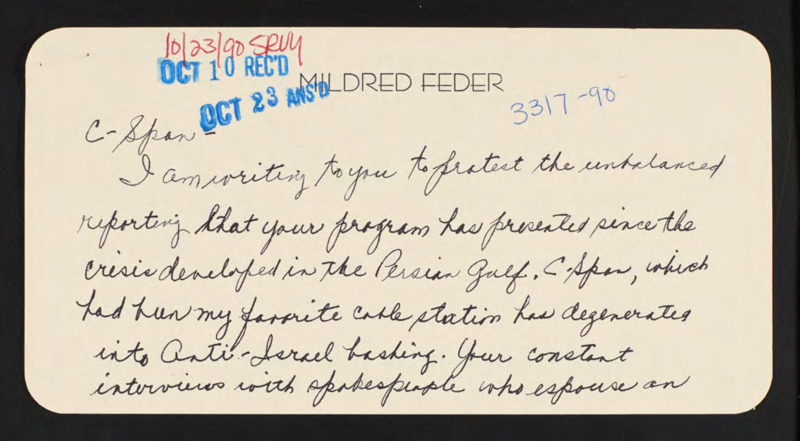 10/23/90 SRVY
OCT 10 REC'D
MILDRED FEDER
OCT 23 ANS'D
3317-90
C-Span
I am writing to you to protest the unbalanced
reporting that your program has presented since the
crisis developed in the Persian Gulf. C-Span, which
had been my favorite cable station has degenerated
into Anti-Israel bashing. Your constant
interviews with spokespeople who espouse an